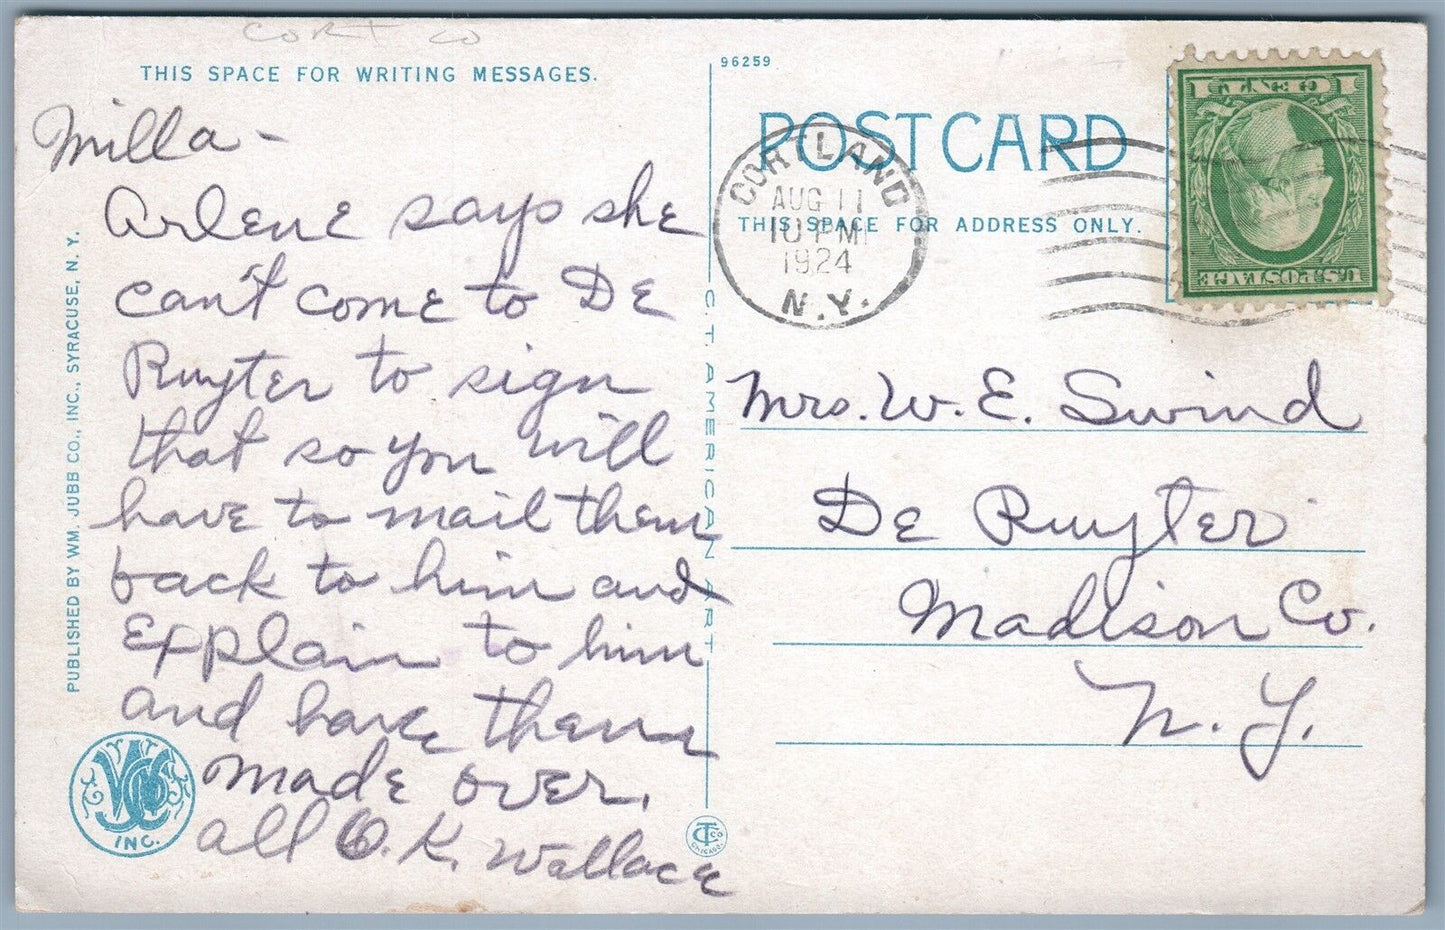 CORT CO
THIS SPACE FOR WRITING MESSAGES.
Milla -
Arlene says she
can't come to De
Ruyter to sign
that so you will
have to mail them
back to him and
Explain to him
and have them
made over.
all O.K. Wallace
PUBLISHED BY WM. JUBB CO., INC., SYRACUSE, N. Y.
WJCO
INC.
C. T. AMERICAN ART
CT CO
CHICAGO.
96259
POST CARD
THIS SPACE FOR ADDRESS ONLY.
CORTLAND
AUG 11
10 PM
1924
N.Y.
1 CENT 1
U.S. POSTAGE
Mrs. W. E. Swind
De Ruyter
Madison Co.
N. Y.